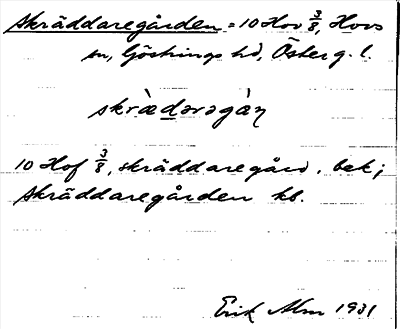 Skräddaregården = 10 Hov 3/8, Hovs
sn, Göstrings hd, Österg. l.
skrä̀dǝrǝgàɳ
10 Hof 3/8, skräddaregård, bek;
Skräddaregården kb.
Erik Alm 1931